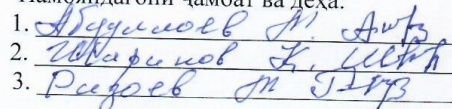 Намояндагони ҷамоат ва деҳа:
1. Абдуллоев М.
2. Шарипов К.
3. Ризоев М